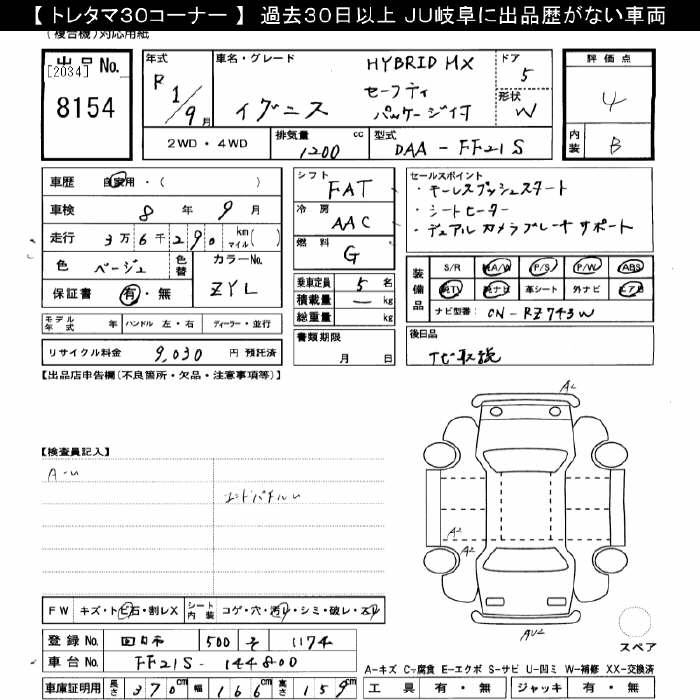 【 トレタマ30コーナー 】 過去30日以上 JU岐阜に出品歴がない車両
(複合機)対応用紙
出品 No.
[2034]
8154
年式
R 1/9 月
車名・グレード
イグニス
HYBRID MX
セーフティ
パッケージ付
ドア
5
形状
W
評価点
4
内装
B
2WD・4WD
排気量 1200 cc
型式 DAA - FF21S
車歴 自家用・( )
車検 8 年 9 月
走行 3万6千290 km マイル( )
色 ベージュ 色替
カラーNo. ZYL
保証書 有・無
シフト FAT
冷房 AAC
燃料 G
乗車定員 5 名
積載量 ー kg
総重量 kg
セールスポイント
・キーレスプッシュスタート
・シートヒーター
・デュアルカメラブレーキサポート
装備品
S/R A/W P/S P/W ABS
純TV 純ナビ 革シート 外ナビ エアB
ナビ型番: CN - RZ743W
モデル年式 年 ハンドル 左・右 ディーラー・並行
リサイクル料金 9,030 円 預託済
書類期限
月 日
後日品
ナビ取説
【出品店申告欄(不良箇所・欠品・注意事項等)】
【検査員記入】
A-U
エンドパネルU
A2
A2
A2
AU2
FW キズ・トビ石・割レX
シート内装 コゲ・穴・汚レ・シミ・破レ・スレ
登録 No. 四日市 500 そ 1174
車台 No. FF21S - 144800
車庫証明用 長さ 370cm 幅 166cm 高さ 159cm
スペア
A−キズ C−腐食 E−エクボ S−サビ U−凹ミ W−補修 XX−交換済
工具 有・無 ジャッキ 有・無